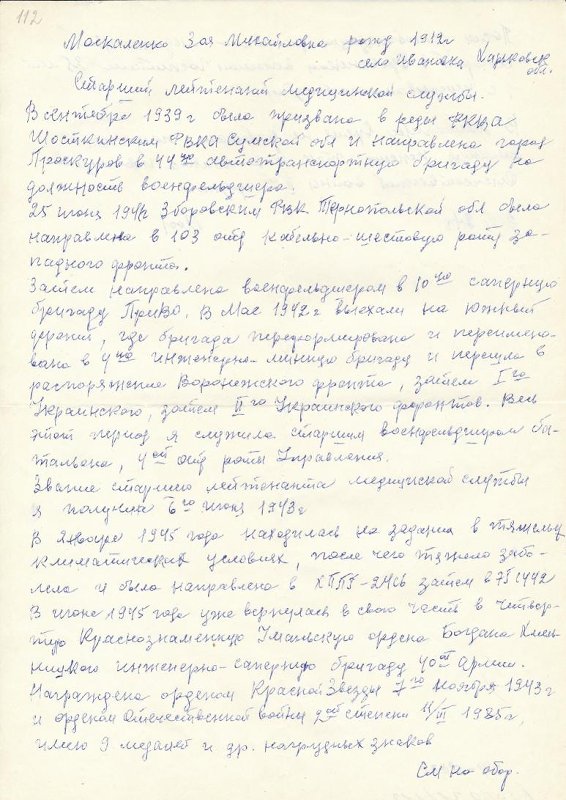 112
Москаленко Зоя Михайловна рожд 1919г
село Ивановка Харьковск
обл.
Старший лейтенант медицинской службы.
В сентябре 1939г была призвана в ряды РККА
Шосткинским РВКА Сумской обл и направлена город
Проскуров в 44ую автотранспортную бригаду на
должность военфельдшера.
25 июня 1941г Зборовским РВК Тернопольской обл была
направлена в 103 отд кабельно-шестовую роту за-
падного фронта.
Затем направлена военфельдшером в 10ую саперную
бригаду ПриВО. В Мае 1942г выехали на южный
фронт, где бригада переформирована и переимено-
вана в 4ую инженерно-минную бригаду и перешла в
распоряжение Воронежского фронта, затем Iго
Украинского, затем IIго Украинского фронтов. Весь
этот период я служила старшим военфельдшером ба-
тальона, 4ой отд роты Управления.
Звание старшего лейтенанта медицинской службы
я получила 6го июня 1943г
В январе 1945 года находилась на задании в тяжелых
климатических условиях, после чего тяжело забо-
лела и была направлена в ХППГ- затем в
В июне 1945 года уже вернулась в свою часть в четвер-
тую Краснознаменную Уманьскую ордена Богдана Хмель-
ницкого инженерно-саперную бригаду 40ой армии.
Награждена орденом Красной Звезды 7го ноября 1943г
и орденом Отечественной войны 2ой степени 11/III 1985г,
имею 9 медалей и др. нагрудных знаков
См на обор.